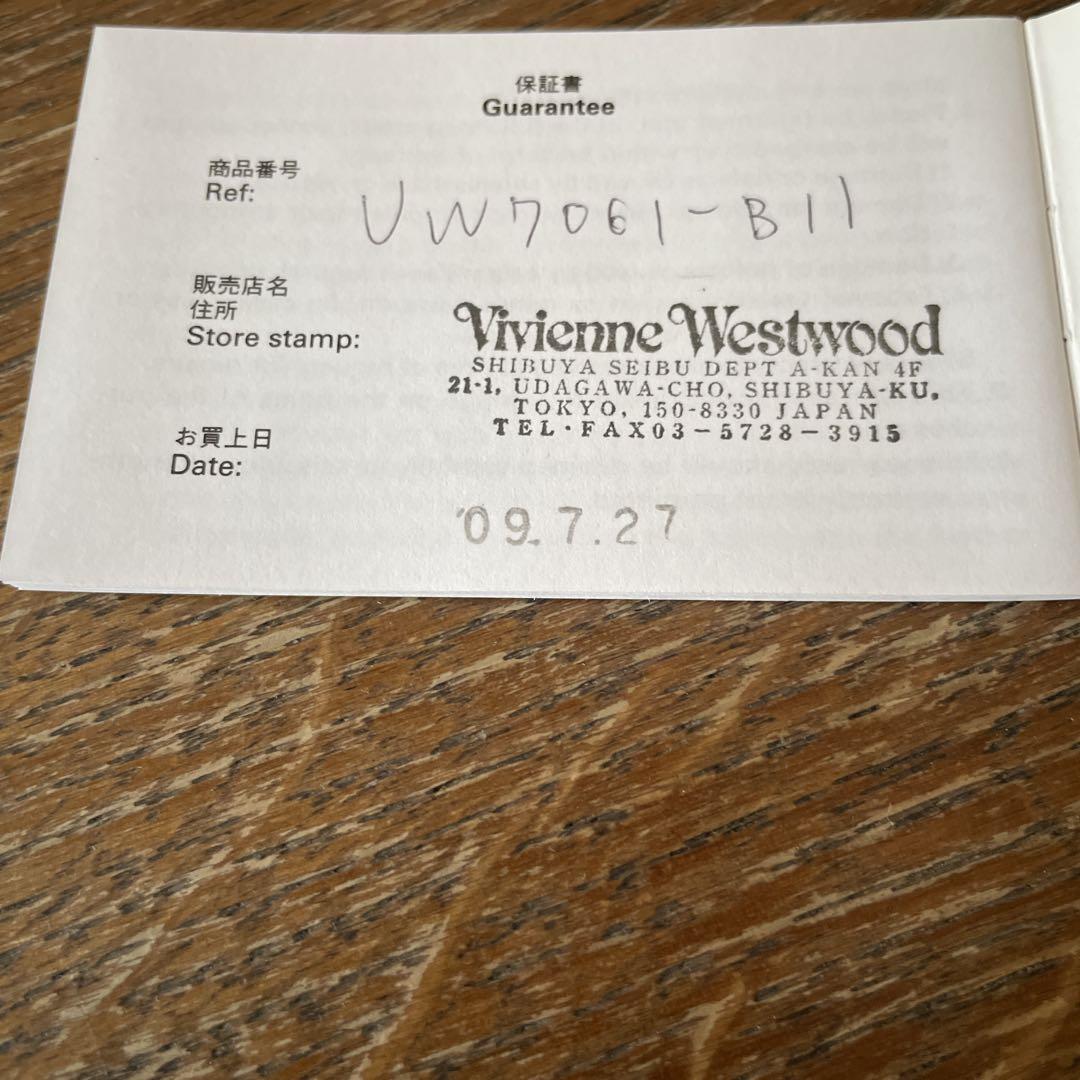 保証書
Guarantee
商品番号
Ref:
VW7061-B11
販売店名
住所
Store stamp:
Vivienne Westwood
SHIBUYA SEIBU DEPT A-KAN 4F
21-1, UDAGAWA-CHO, SHIBUYA-KU,
TOKYO, 150-8330 JAPAN
TEL・FAX03-5728-3915
お買上日
Date:
'09.7.27